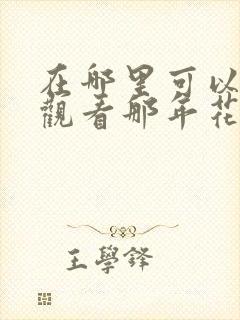 在哪里可以
觀看那年花
王學鋒